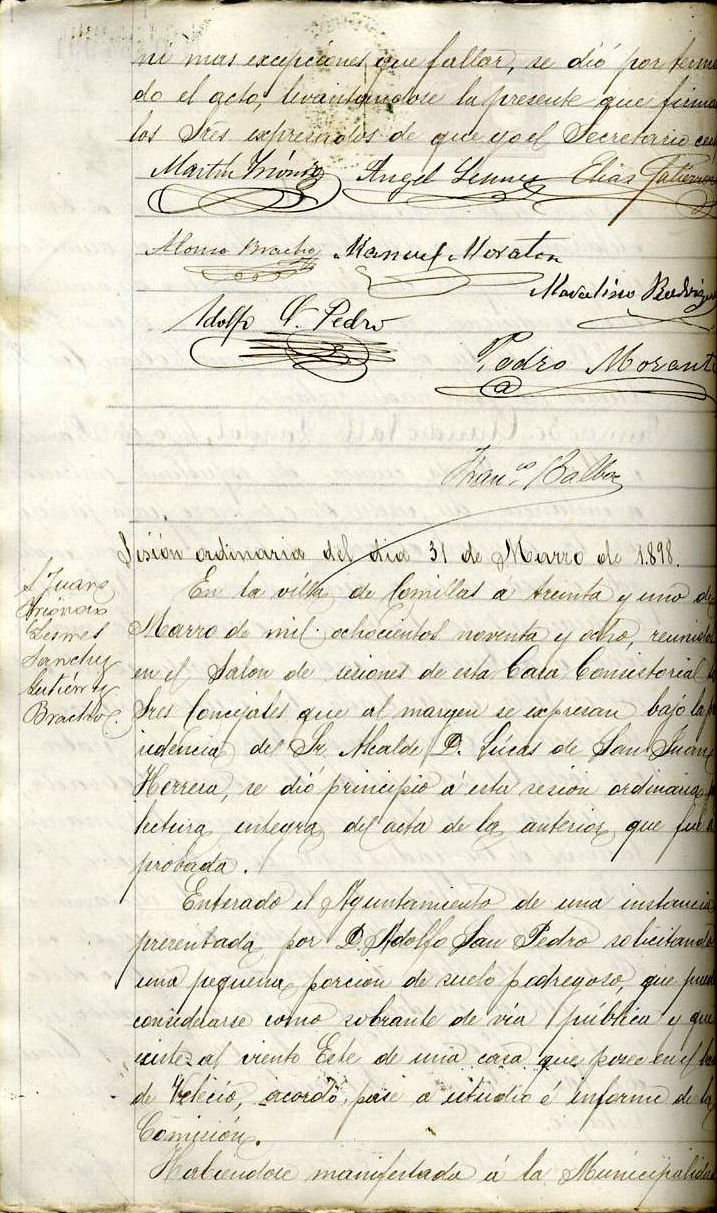 ni mas excepciones que fallar, se dió por termi
do el acto, levantandose la presente que firma
los Sres expresados de que yo el Secretario cer
Martin Angel Lesmes Elias Gutierrez
Alonso Bracho Manuel Moraton
Marcelino Rodrigu
Adolfo S. Pedro
Pedro Morante
Franco Balbo
Sesión ordinaria del dia 31 de Marzo de 1898.
S Juan
Lesmes
Sanchez
Gutiérrez
Bracho.
En la villa de Comillas á treinta y uno de
Marzo de mil ochocientos noventa y ocho, reunidos
en el Salon de sesiones de esta Casa Consistorial
Sres Concejales que al margen se expresan bajo la
sidencia del Sr. Alcalde D. Lúcas de San Juan
Herrera, se dió principio á esta sesion ordinaria
lectura integra del acta de la anterior que fue
probada.
Enterado el Ayuntamiento de una instancia
presentada por D. Adolfo San Pedro solicitando
una pequeña porcion de suelo pedregoso, que pue
considerarse como sobrante de vía pública y que
existe al viento Este de una casa que posee en el
de Velecio, acordó pase a estudio é informe de la
Comisión.
Habiendose manifestado á la Municipalidad